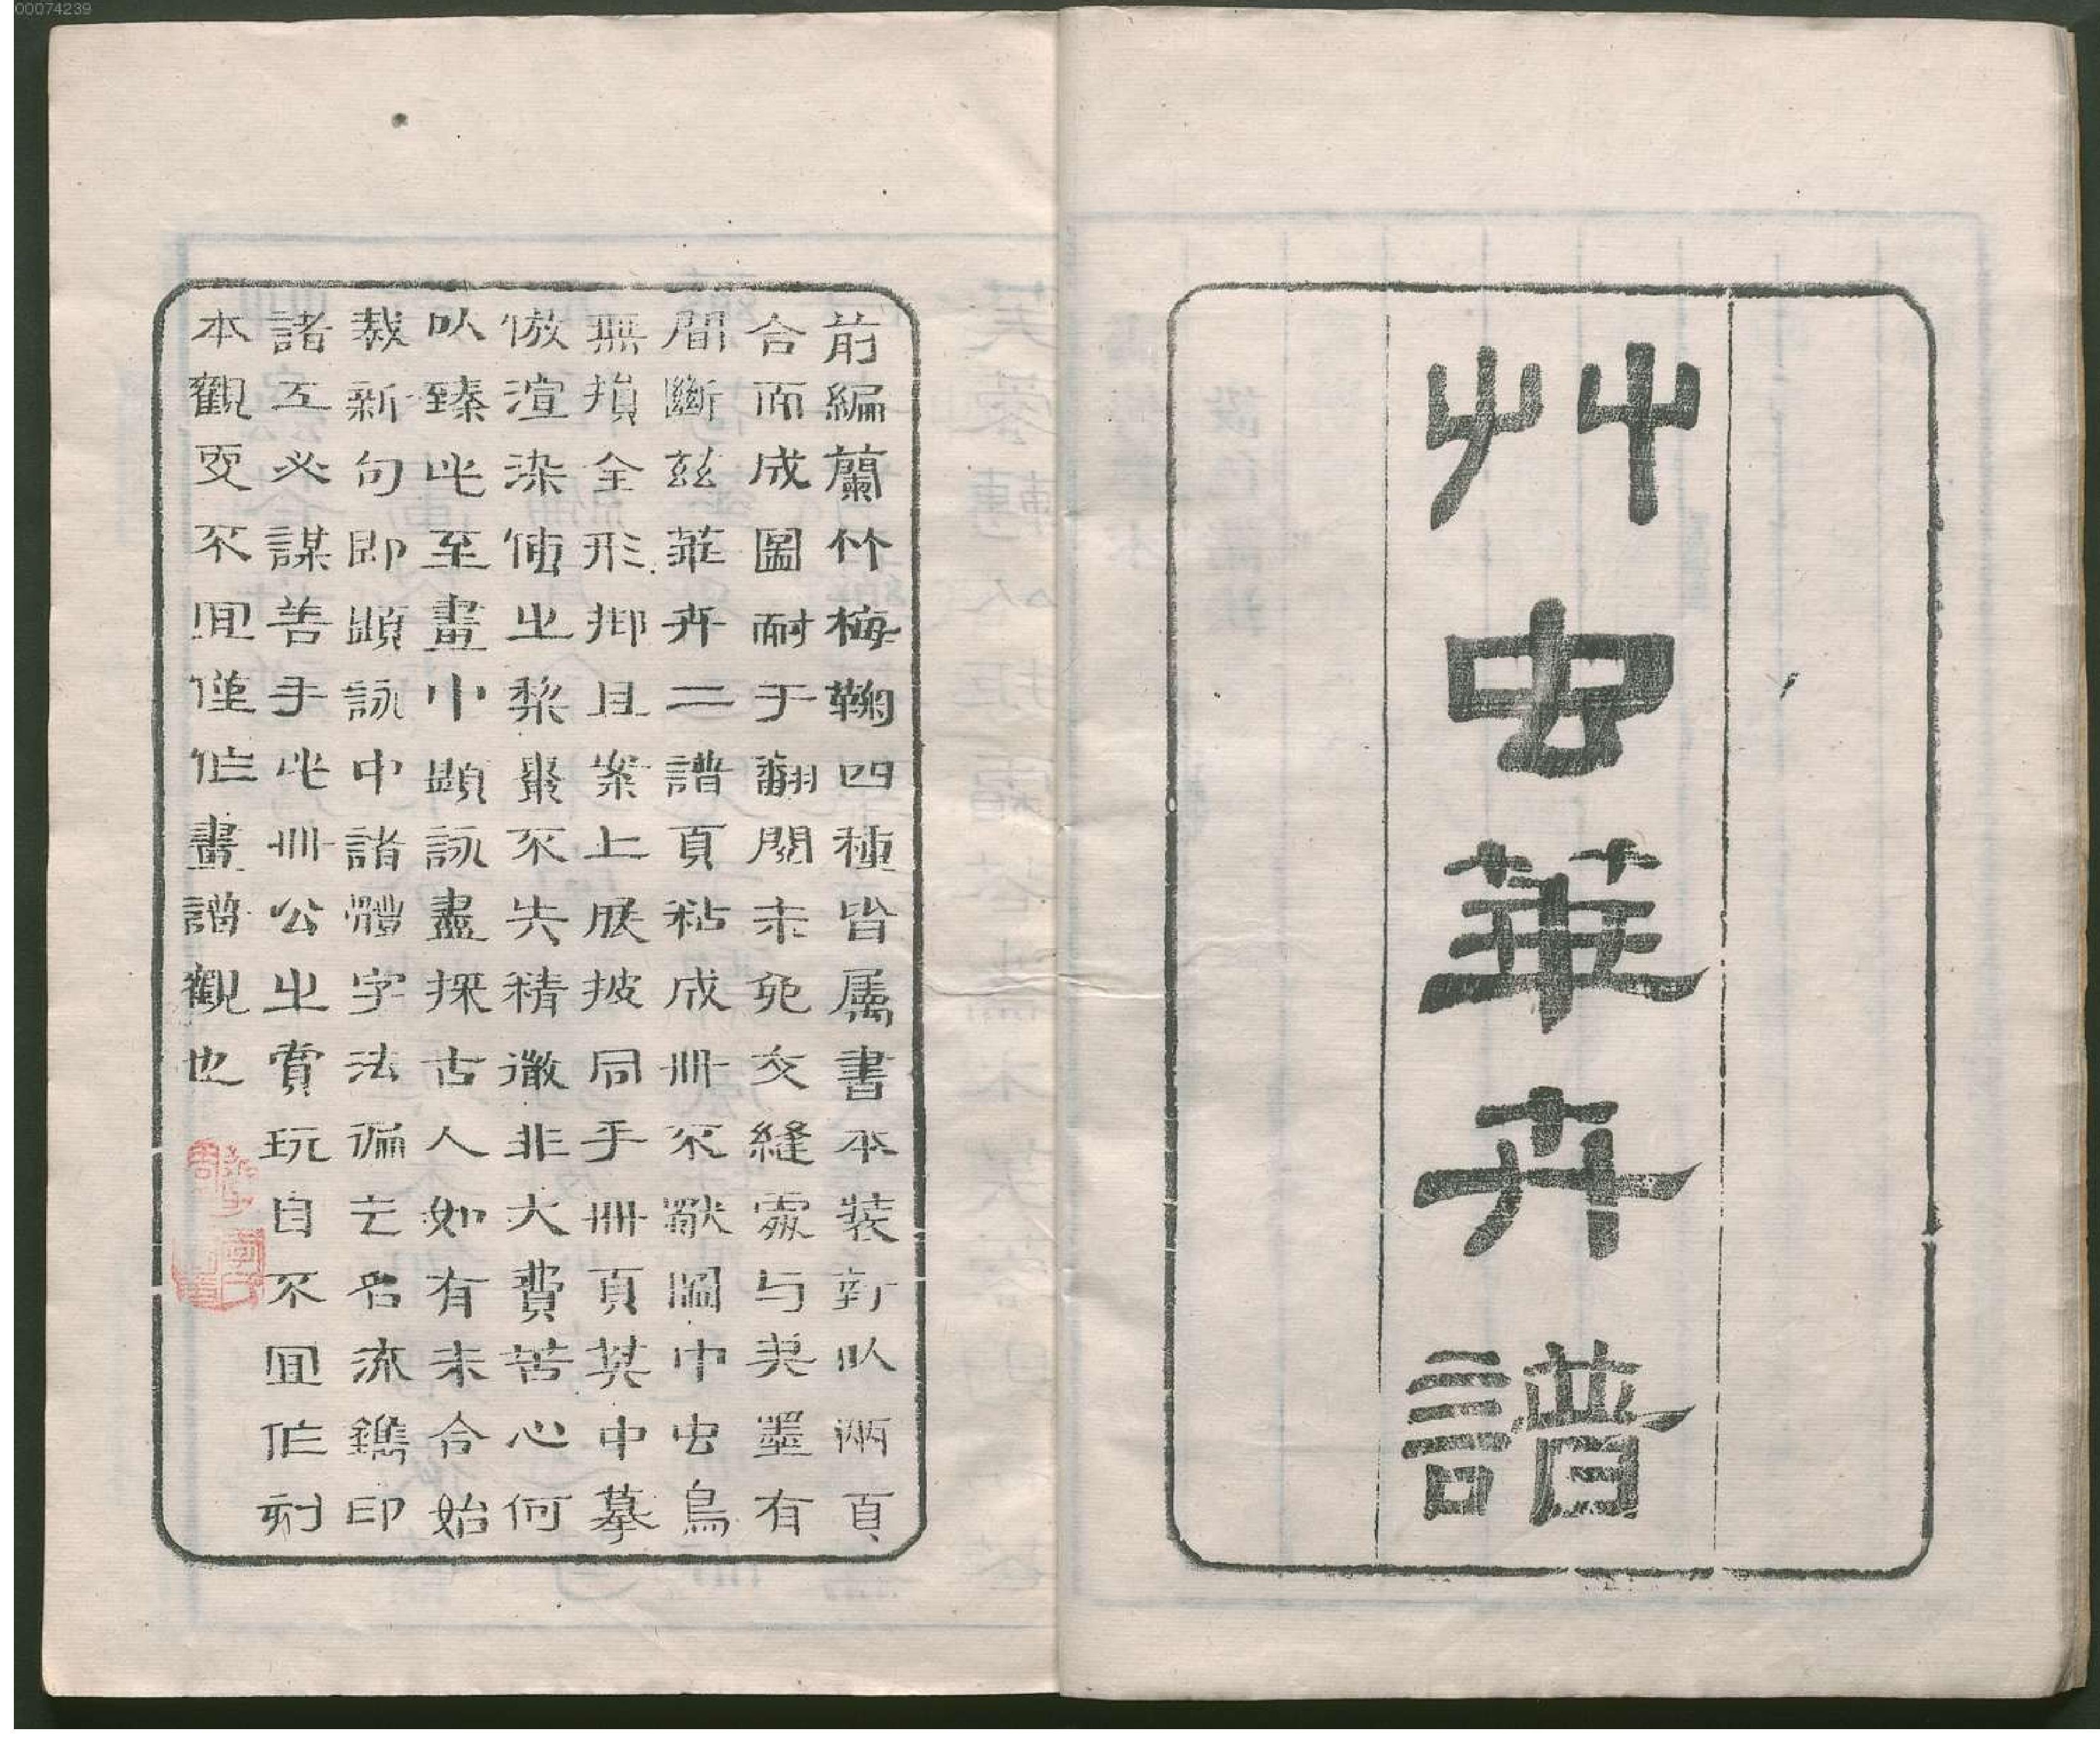 00074239
艸虫華卉譜
前編蘭竹梅鞠四種皆属書本裝釘以兩頁
合而成圖耐于翻閱未免交縫處与筆墨有
間斷兹華卉二譜頁粘成冊不獨圖中虫鳥
無損全形抑且案上展披同乎冊頁其中摹
倣渲染傅之棃棗不失精微非大費苦心何
以臻此至畫中題詠盡採古人如有未合始
裁新句即題詠中諸體字法徧乞名流鐫印
諸工必謀善手此冊公之賞玩自不宜作刻
本觀更不宜僅作畫譜觀也